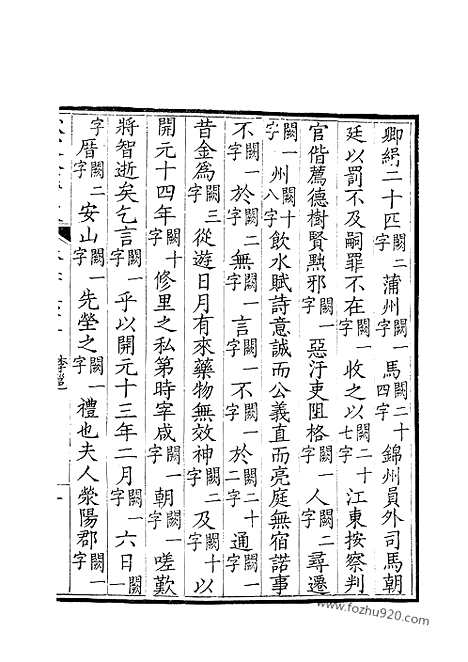 卿緝二十匹闕二字蒲州闕一字馬闕二十四字錦州員外司馬朝
廷以罰不及嗣罪不在闕一字收之以闕二十七字江東按察判
官偕薦德樹賢黜邪闕一字惡汙吏阻格闕一字人闕二字尋遷
闕一字州闕十八字飲水賦詩意誠而公義直而亮庭無宿諾事
不闕一字於闕二字無闕一字言闕一字不闕一字於闕二十二字通闕一字
昔金爲闕三字從遊日月有來藥物無效神闕二字及闕十字以
開元十四年闕十字修里之私第時宰咸闕一字朝闕一字嗟歎
將智逝矣乞言闕一字乎以開元十三年二月闕一字六日闕一
字厝闕二字安山闕一字先塋之闕一字禮也夫人滎陽郡闕一字
李邕
一
www.fozhu920.com